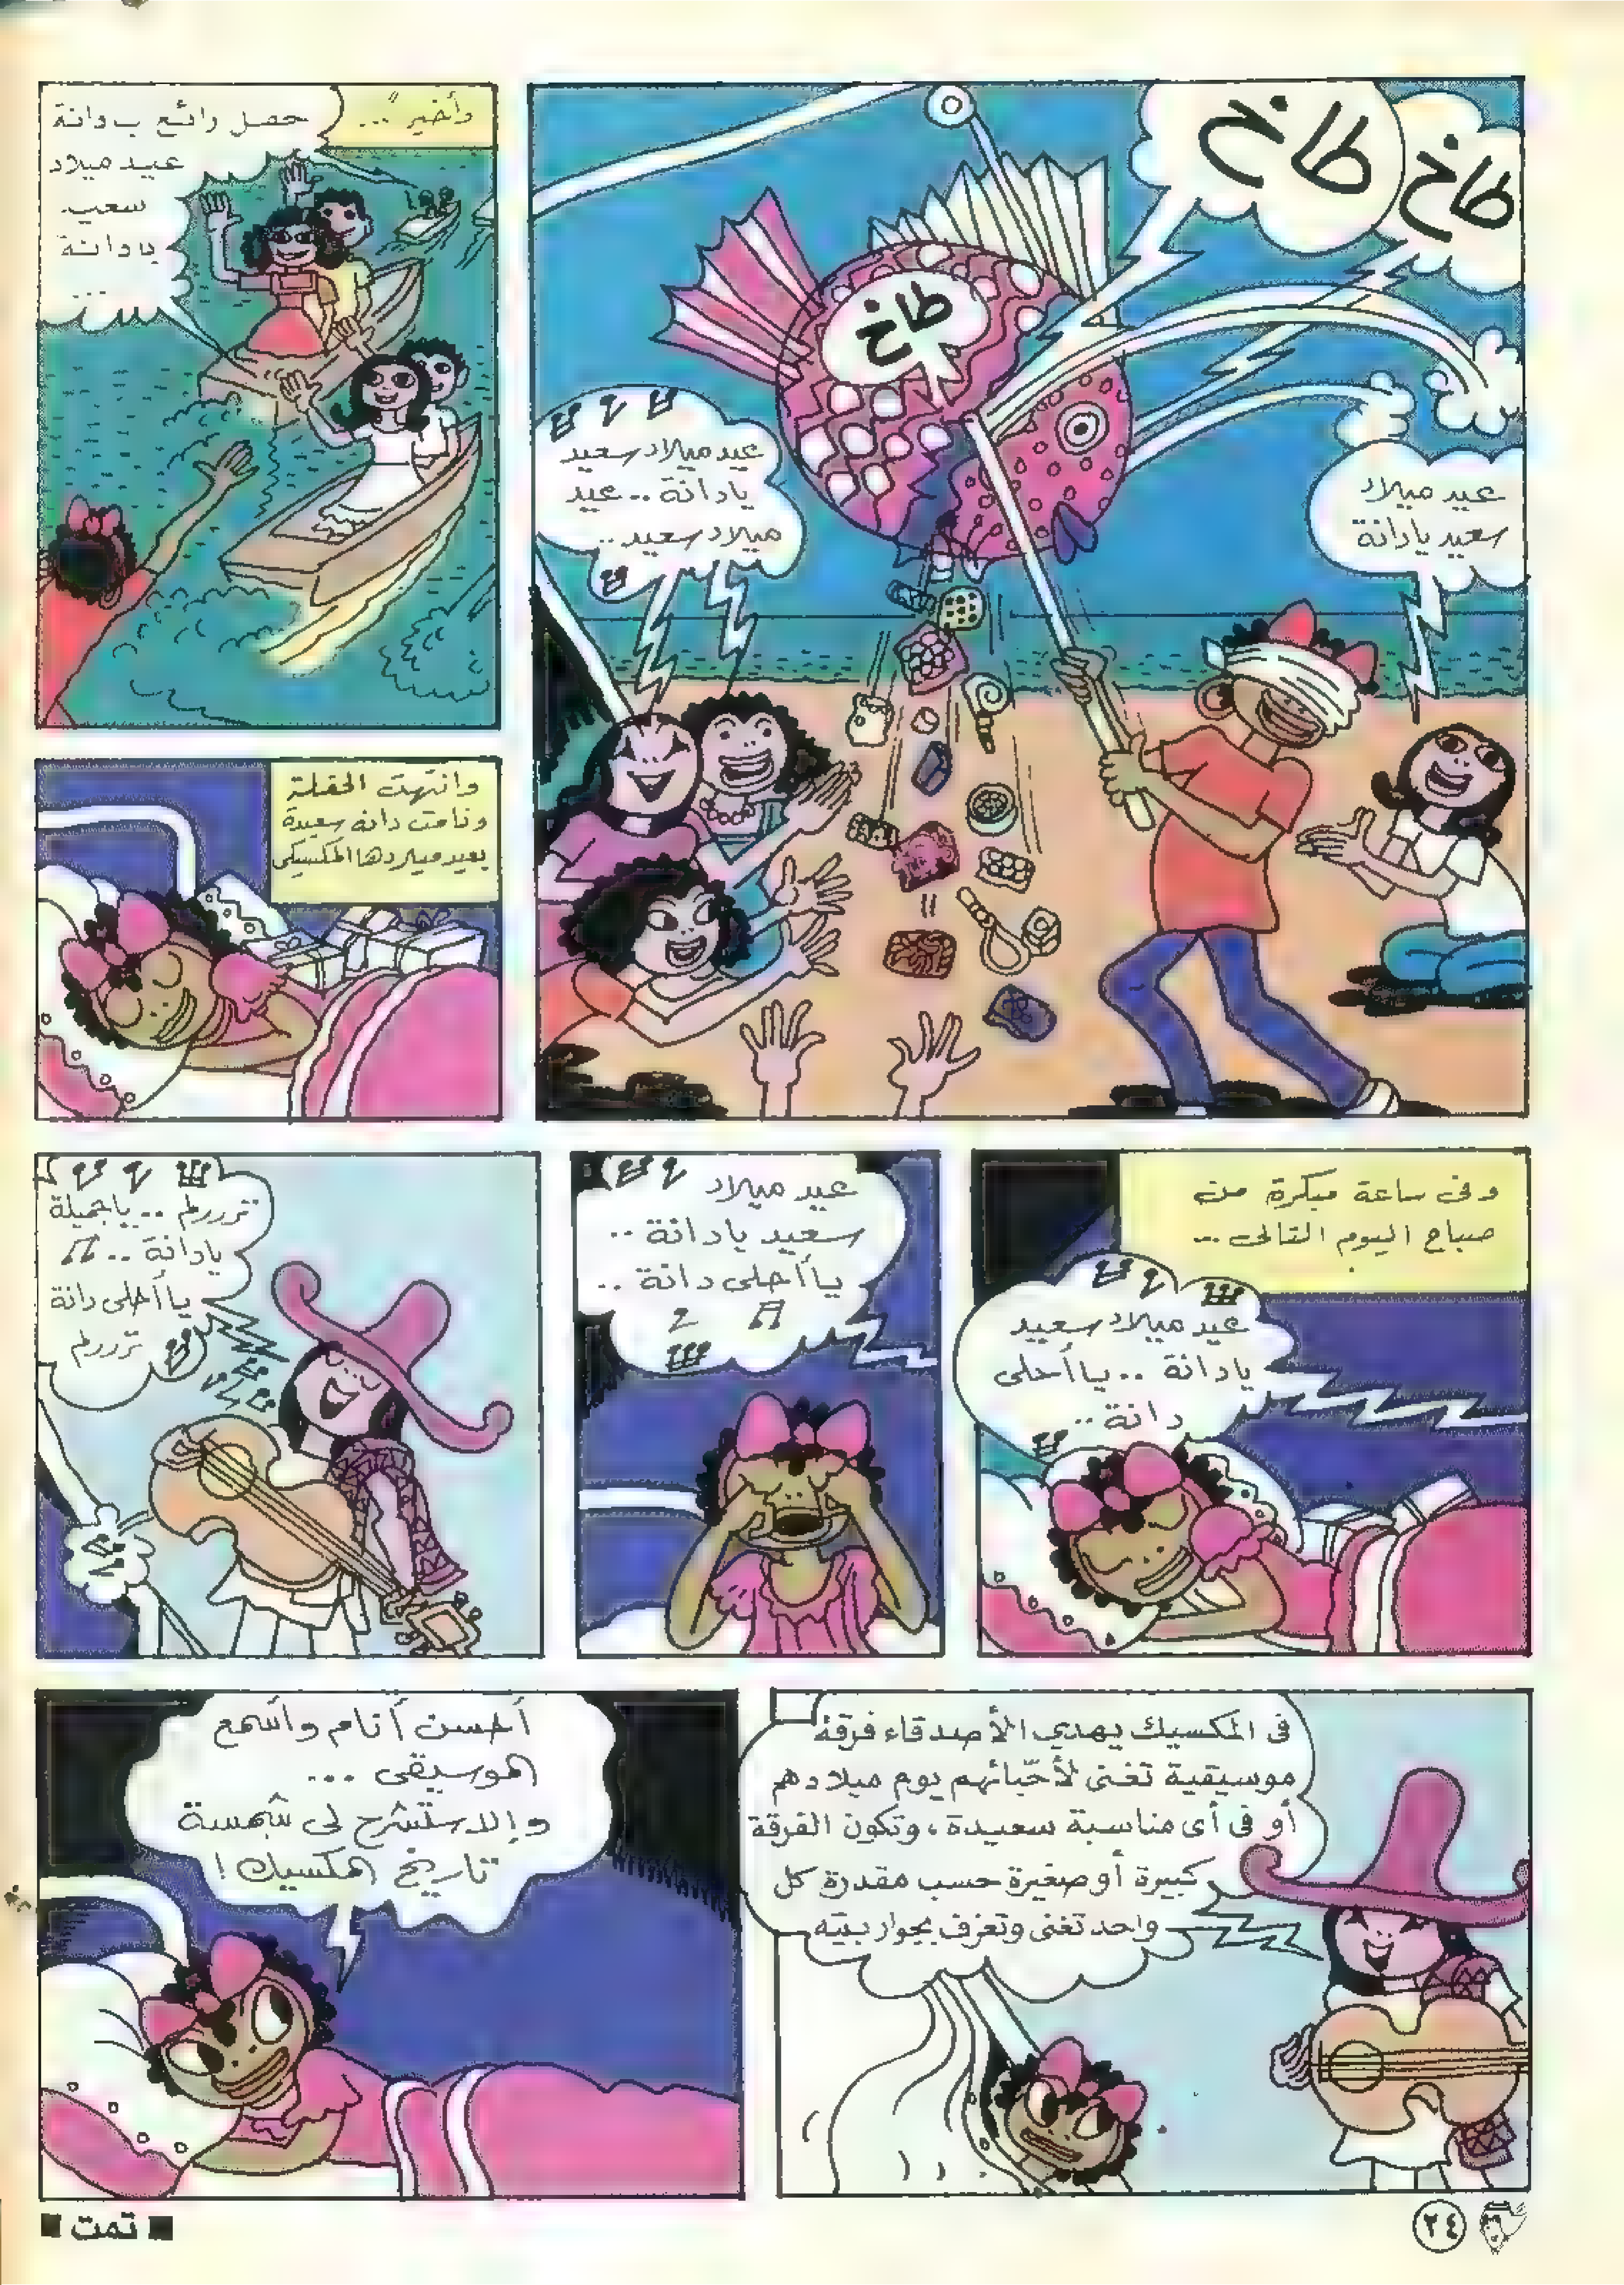 طاخ
طاخ
طاخ
عيد ميلاد
سعيد يا دانة
عيد ميلاد سعيد
يا دانة .. عيد
ميلاد سعيد ..
وأخيراً ...
حفل رائع يا دانة
عيد ميلاد
سعيد
يا دانة
وانتهت الحفلة
ونامت دانه سعيدة
بعيد ميلادها المكسيكى
وفى ساعة مبكرة من
صباح اليوم التالى ...
عيد ميلاد سعيد
يا دانة .. يا أحلى
دانة ..
عيد ميلاد
سعيد يا دانة ..
يا أحلى دانة ..
تررررلم .. يا جميلة
يا دانة ..
يا أحلى دانة
تررررلم
فى المكسيك يهدي الأصدقاء فرقة
موسيقية تغنى لأحبّائهم يوم ميلادهم
أو فى أى مناسبة سعيدة ، وتكون الفرقة
كبيرة أو صغيرة حسب مقدرة كل
واحد تغنى وتعزف بجوار بيته
أحسن أنام وأسمع
الموسيقى ...
وإلا ستشرح لى شمسة
تاريخ المكسيك !
٢٤
تمت